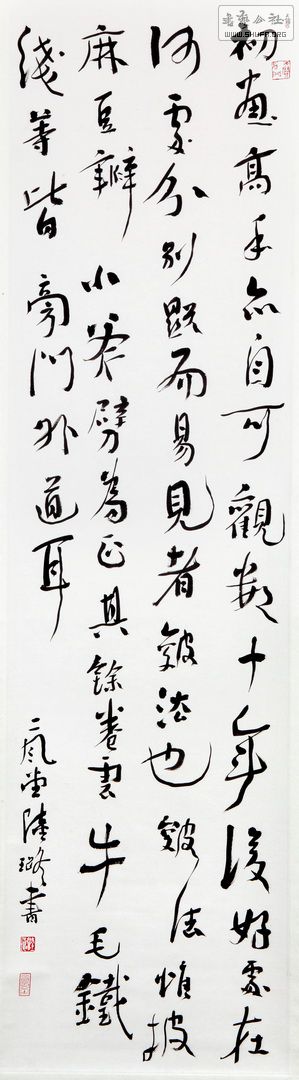 初畫高手亦自可觀數十年後好處在
何處分別顯而易見者皴法也皴法惟披
麻豆瓣小斧劈為正其餘卷雲牛毛鐵
綫等皆旁門外道耳
二風堂陸璐書
書藝公社
WWW.SHUFR.ORG